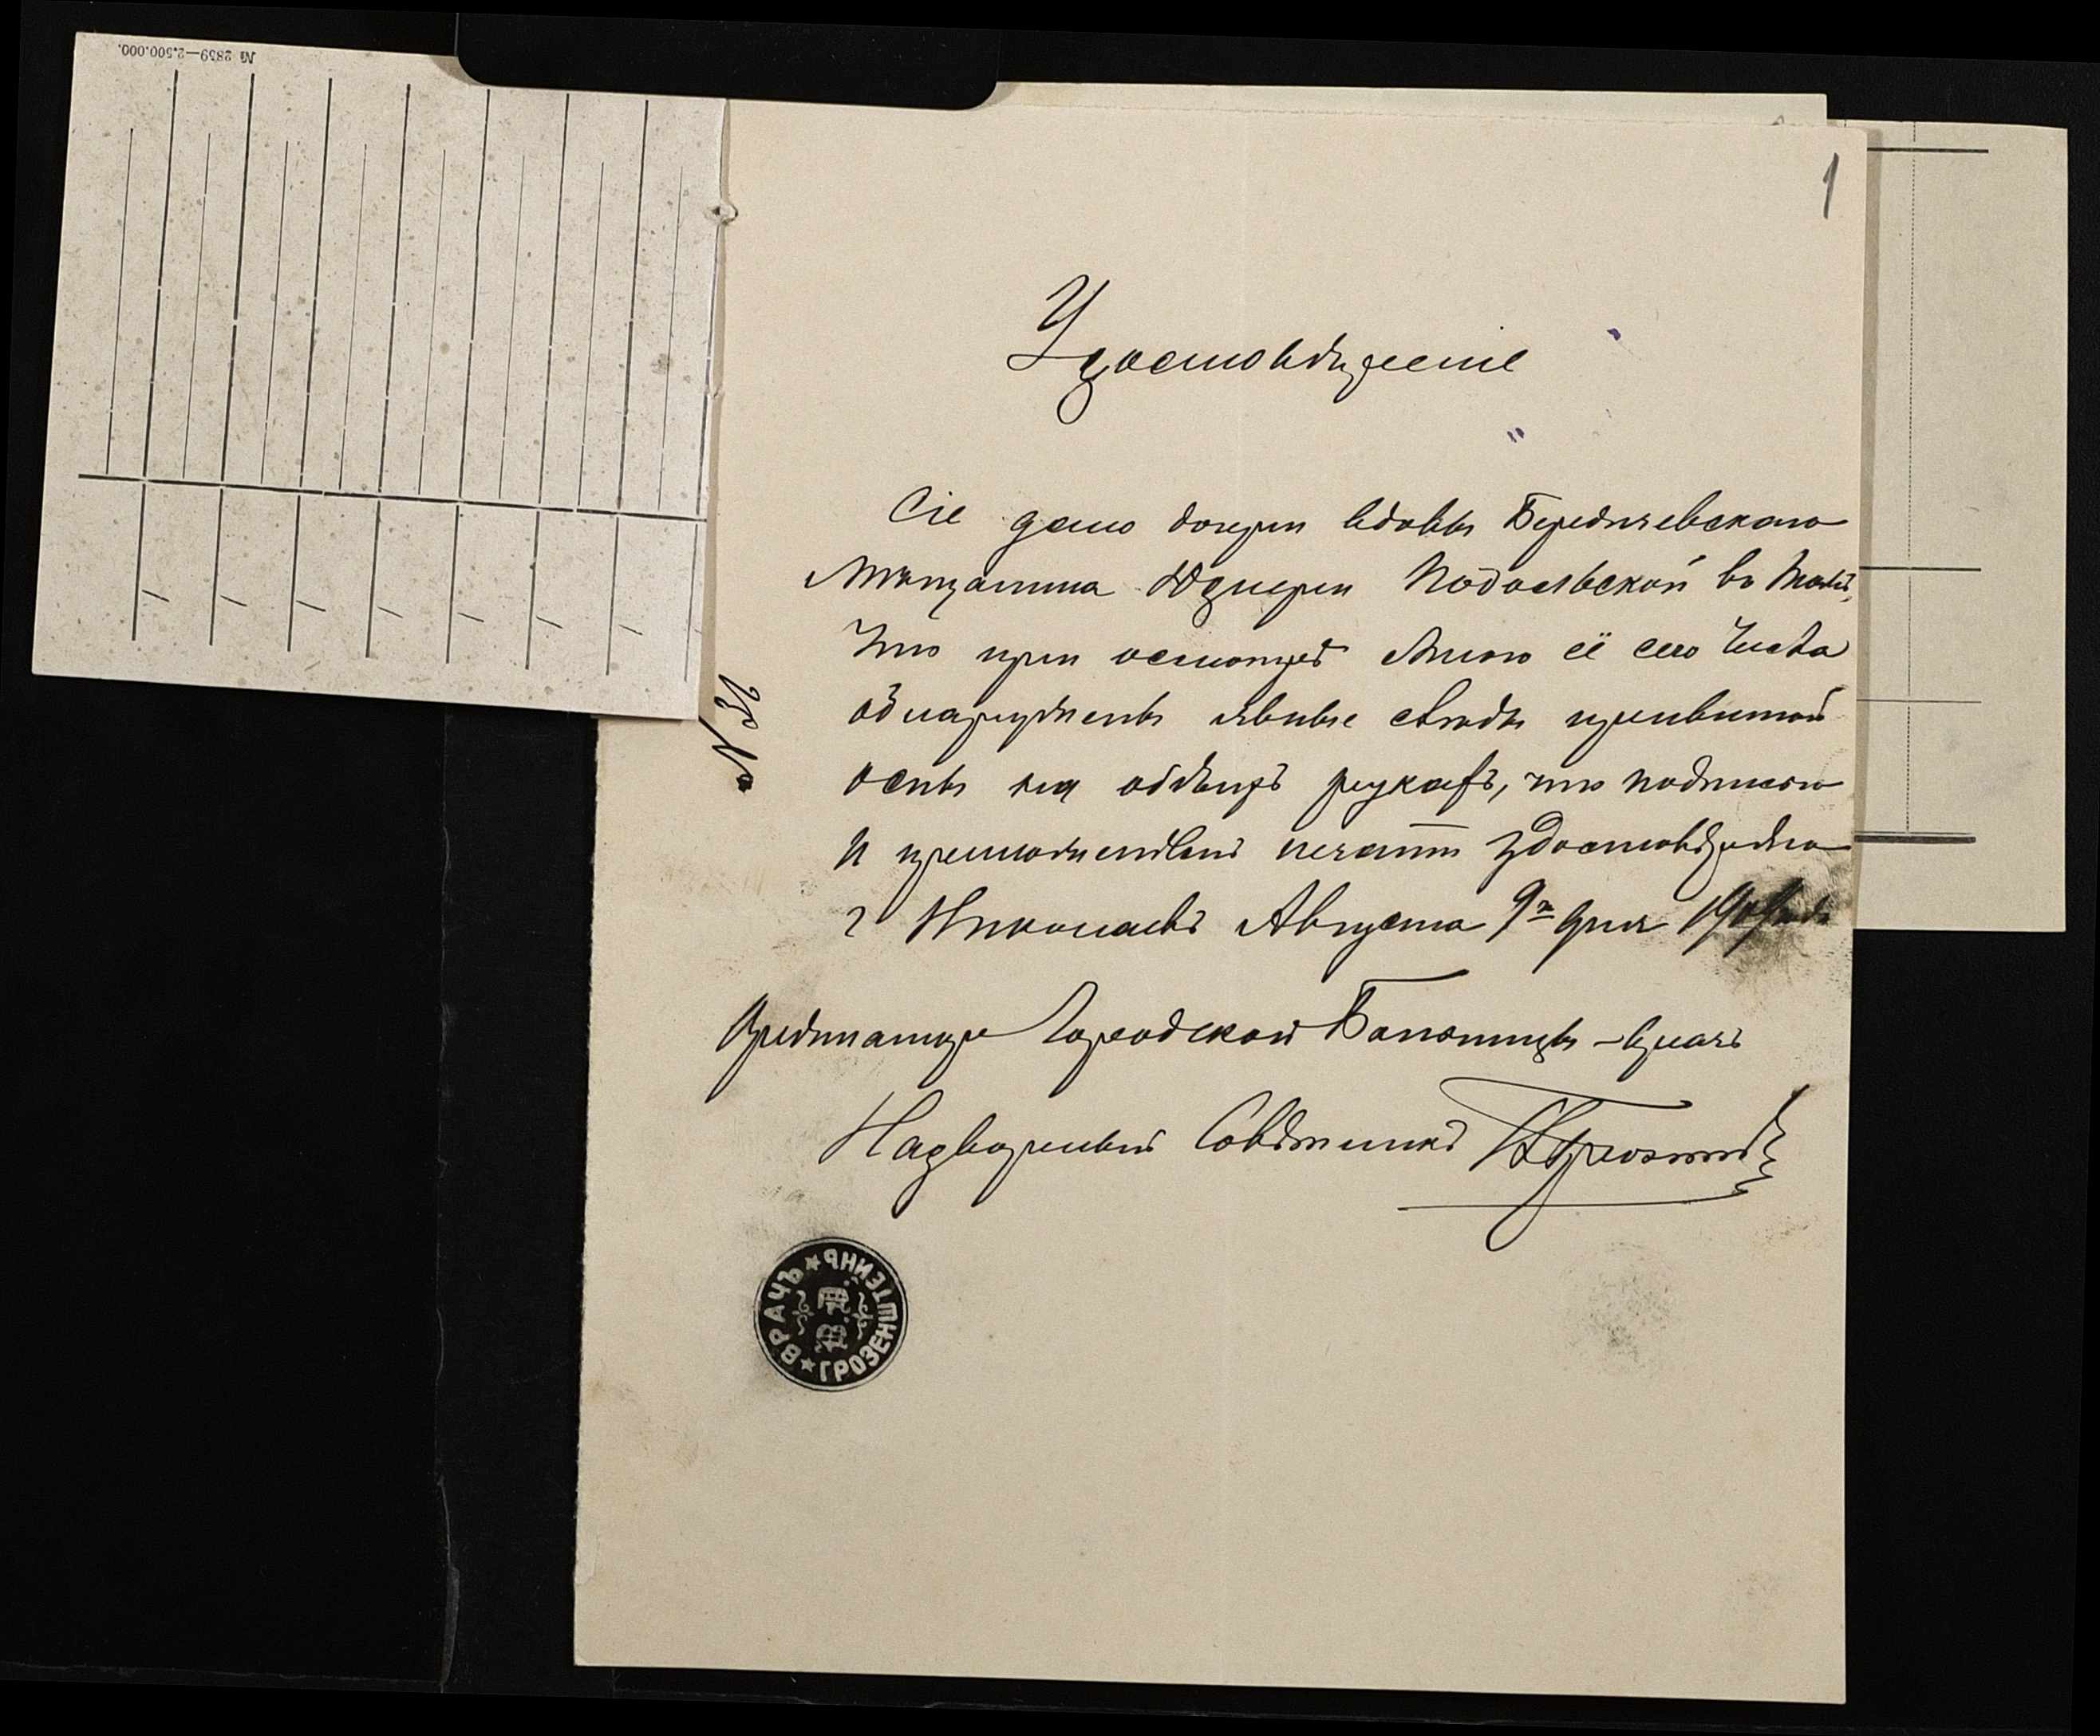 № 2859—2.500.000.
1
Удостовѣреніе
Сіе дано дочери вдовы Бердичевскаго
Мѣщанина Подольской въ томъ,
Что при осмотрѣ Мною её сего числа
обнаружены явные слѣды привитой
оспы на обѣихъ рукахъ, что подписью
и приложеніемъ печати удостовѣряю
г Николаевъ Августа 9го дня
Ординаторъ Городской Больницы – врачъ
Надворный Совѣтникъ
ВРАЧЪ ★ ГРОЗЕНШТЕЙНЪ ★